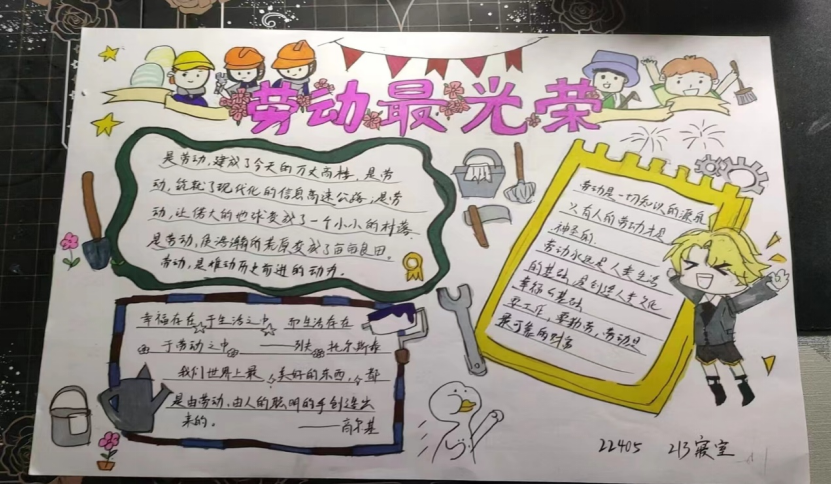 劳动最光荣
是劳动,建成了今天的万丈高楼,是劳
动,筑就了现代化的信息高速公路,是劳
动,让偌大的地球变成了一个小小的村落.
是劳动,使浩瀚的荒原变成了亩亩良田.
劳动,是推动历史前进的动力。
幸福存在于生活之中,而生活存在
于劳动之中 ——列夫托尔斯泰
我们世界上最美好的东西,都
是由劳动,由人的聪明的手创造出
来的。 ——高尔基
劳动是一切知识的源泉
只有人的劳动才是
神圣的.
劳动永远是人类生活
的基础,是创造人类文化
幸福的基础
要工作,要勤劳,劳动是
最可靠的财富
22405 213寝室